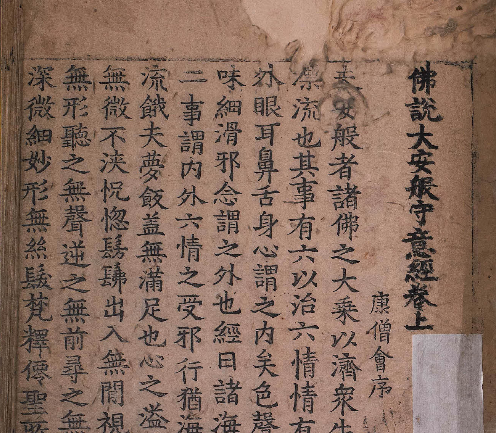 佛說大安般守意經卷上
康僧會序
安般者諸佛之大乘以濟衆生
漂流也其事有六以治六情情有
外眼耳鼻舌身心謂之内矣色聲
味細滑邪念謂之外也經曰諸海
二事謂内外六情之受邪行猶海
流餓夫夢飯盖無滿足也心之溢
無微不浹怳惚髣髴出入無間視
無形聽之無聲逆之無前尋之無
深微細妙形無絲髮梵釋僊聖所